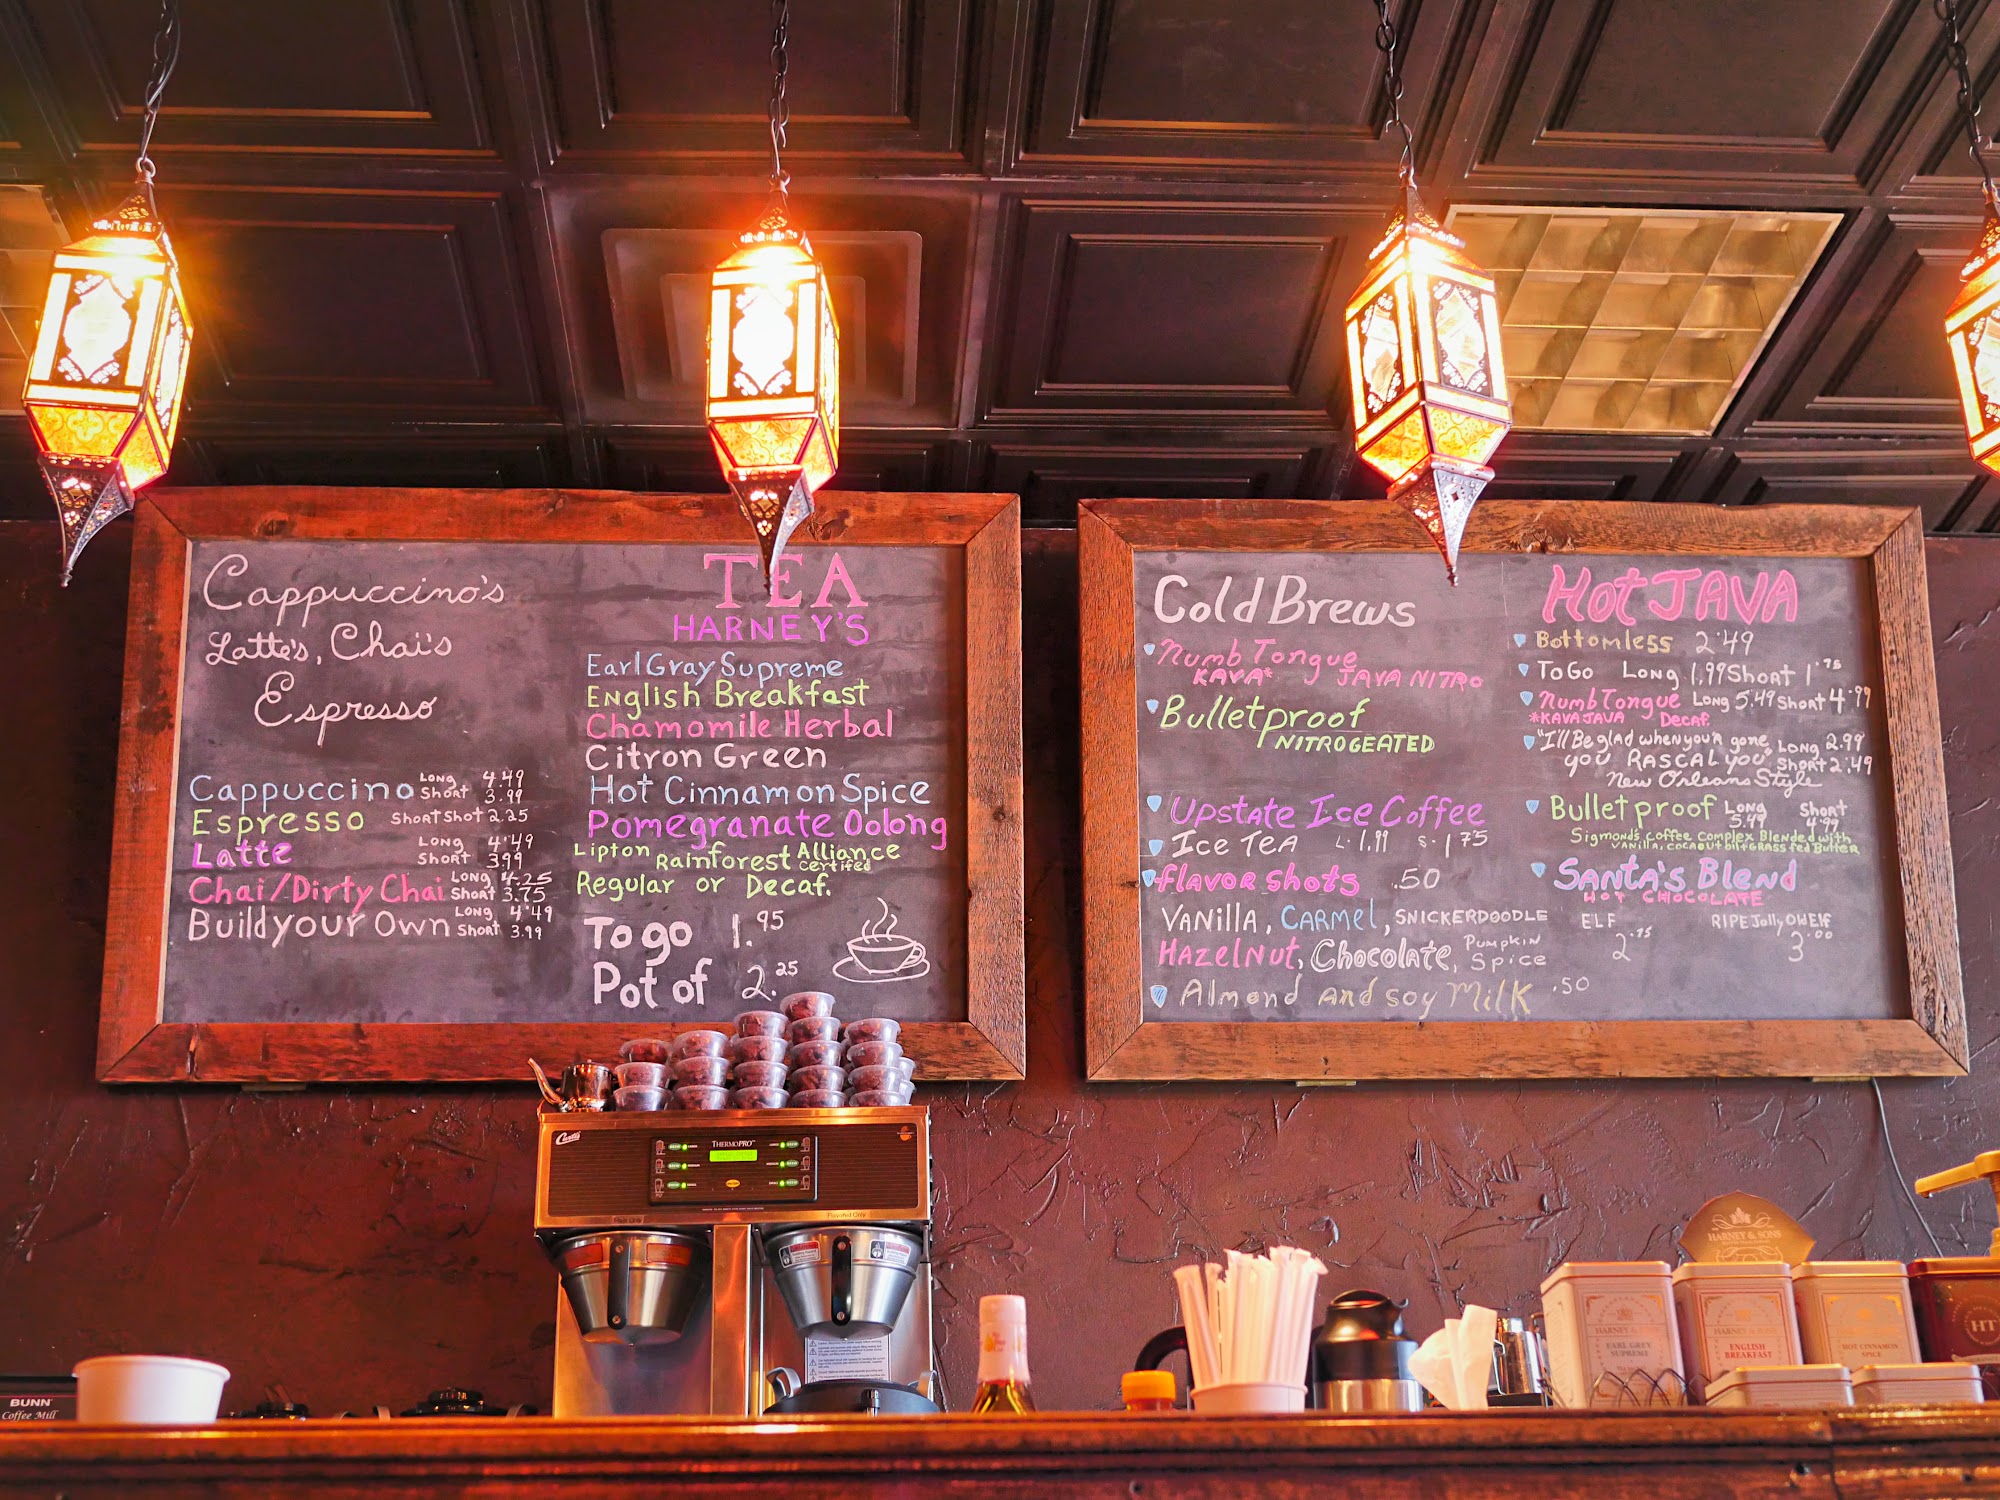 Cappuccino's
Latte's, Chai's
Espresso
Cappuccino Long 4.49
Short 3.99
Espresso Short Shot 2.25
Latte Long 4.49
Short 3.99
Chai/Dirty Chai Long 4.25
Short 3.75
Build your Own Long 4.49
Short 3.99
TEA
HARNEY'S
Earl Gray Supreme
English Breakfast
Chamomile Herbal
Citron Green
Hot Cinnamon Spice
Pomegranate Oolong
Lipton Rainforest Alliance
Certifed
Regular or Decaf.
To go 1.95
Pot of 2.25
Cold Brews
Numb Tongue
KAVA* JAVA NITRO
Bulletproof
NITROGEATED
Upstate Ice Coffee
Ice Tea L. 1.99 S. 1.75
flavor shots .50
Vanilla, Carmel, Snickerdoodle
Hazelnut, Chocolate, Pumpkin
Spice
Almond and Soy Milk .50
Hot JAVA
Bottomless 2.49
To Go Long 1.99 Short 1.75
Numb Tongue Long 5.49 Short 4.99
*KAVA JAVA Decaf.
"I'll Be glad when you'r gone Long 2.99
you RASCAL you" Short 2.49
New Orleans Style
Bulletproof Long Short
5.49 4.99
Sigmonds Coffee Complex Blended with
Vanilla, Cocaout oil + Grass fed Butter
Santa's Blend
HOT CHOCOLATE
ELF RIPE Jolly Old Elf
2.75 3.00
Curtis
THERMOPRO
Flavored Only
BUNN
Coffee Mill
HARNEY & SONS
HARNEY & SONS
EARL GREY
SUPREME
HARNEY & SONS
ENGLISH
BREAKFAST
HOT CINNAMON
SPICE
HT